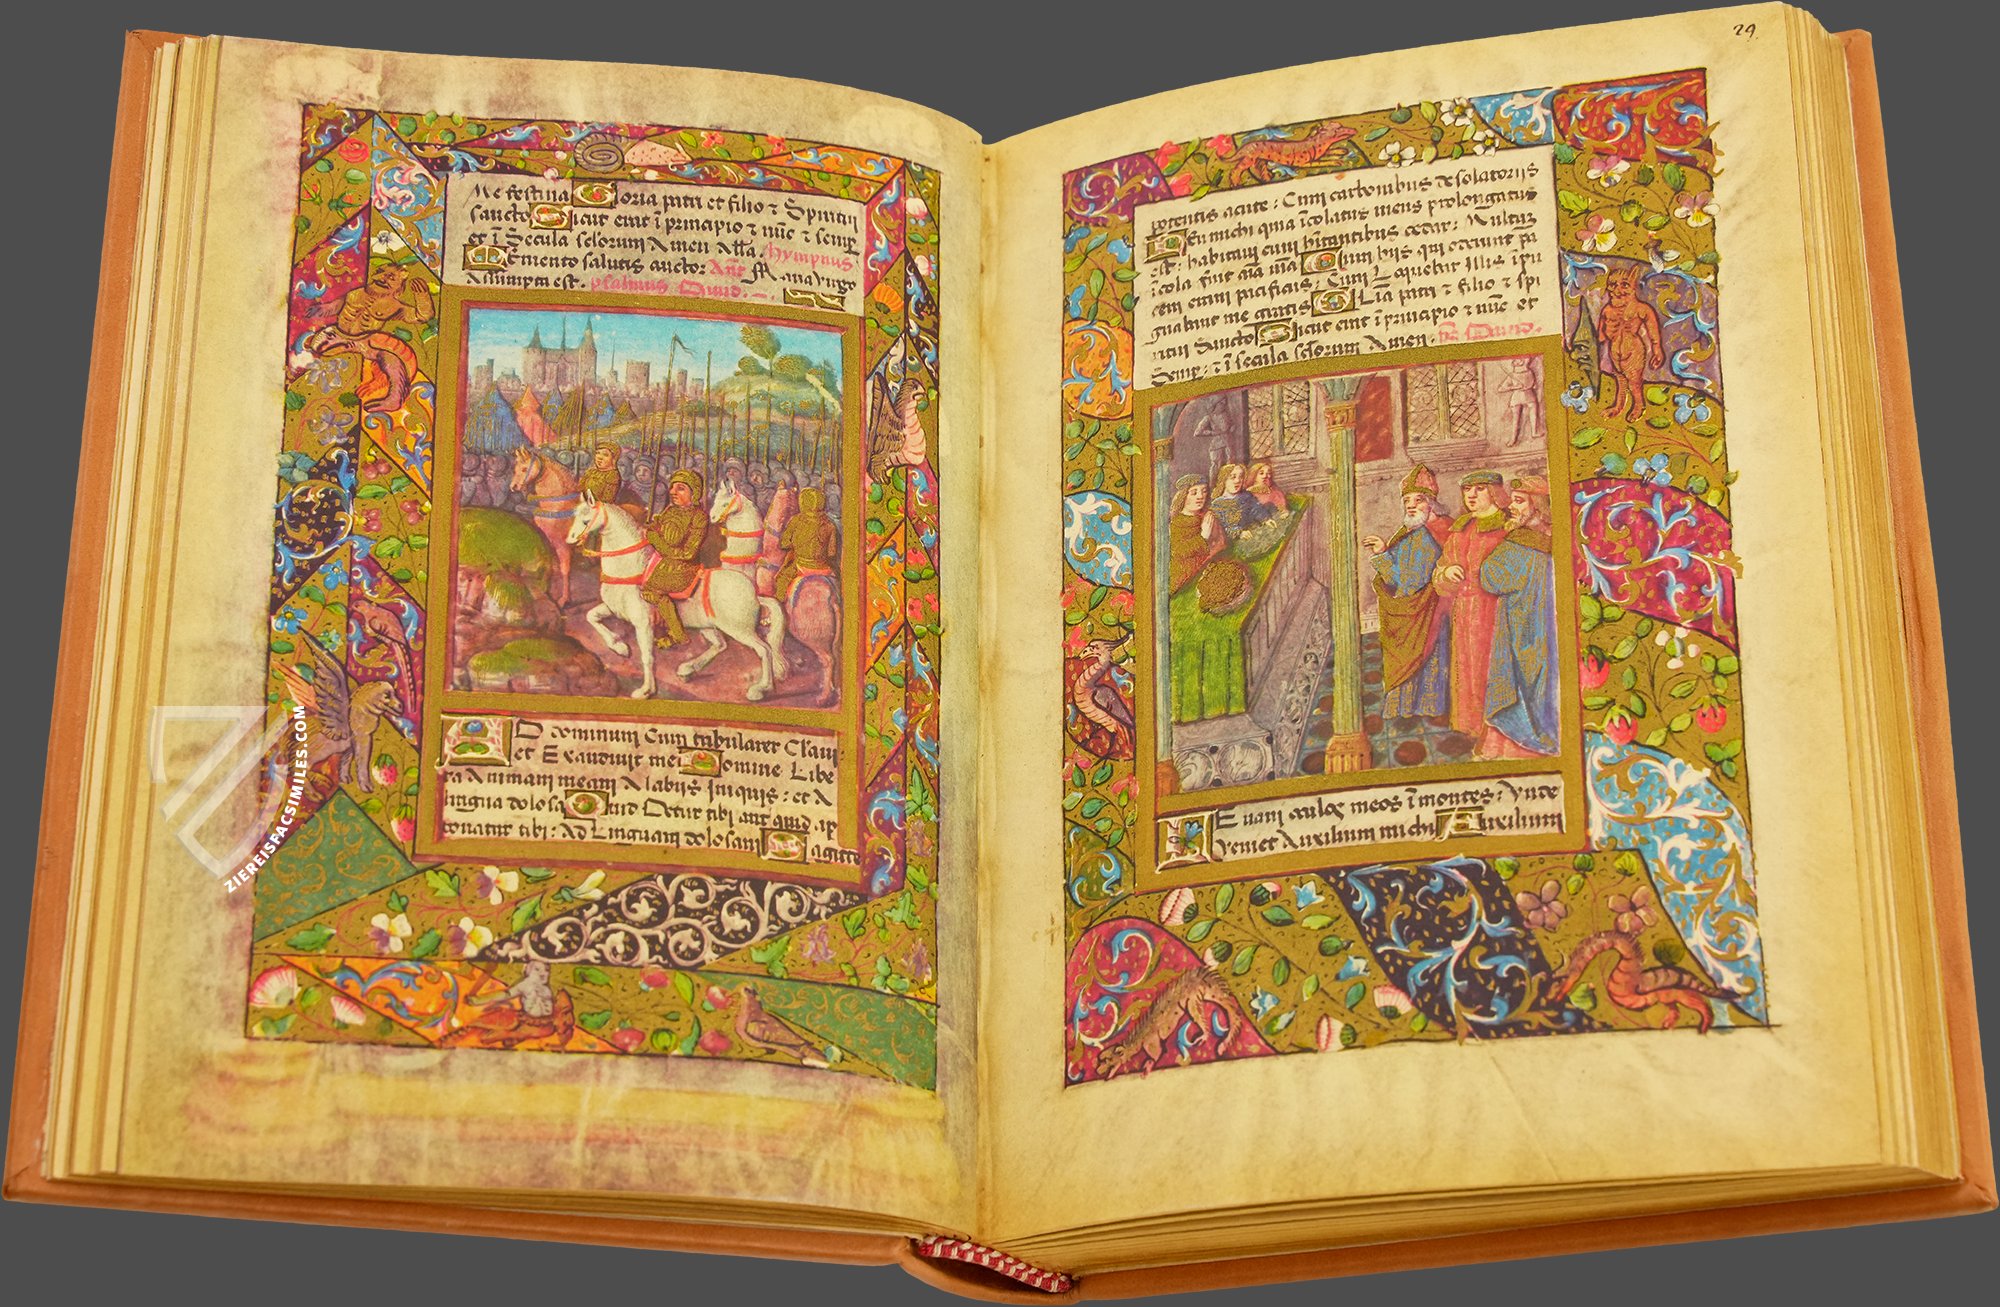 Me festina Gloria patri et filio ⁊ Spiritui
sancto Sicut erat ī principio ⁊ nūc ⁊ semp
et ī Secula sclorum Amen Alla. hympnus
Memento salutis auctor Añe Maria virgo
Assumpta est. psalmus David.
AD dominum Cum tribularer Clamavi
et Exaudivit me Domine Libe
ra Animam meam A labiis Iniquis: et A
lingua dolosa Quid Detur tibi aut quid ap
ponatur tibi: AD Linguam dolosam Sagitte
29
potentis acute: Cum carbonibus desolatoriis
Heu michi quia īcolatus meus prolongatus
est: habitavi cum hītantibus cedar: Multum
īcola fuit aīa mea Cum hiis qui oderunt pa
cem eram pacificus: Cum Loquebar Illis īpu
gnabant me gratis Glīa patri ⁊ filio ⁊ spi
ritui Sancto Sicut erat ī principio ⁊ nūc et
Semp: ⁊ ī secula sclorum Amen. David.
LEvavi oculos meos ī montes: Unde
veniet Auxilium michi Auxilium
ZIEREISFACSIMILES.COM